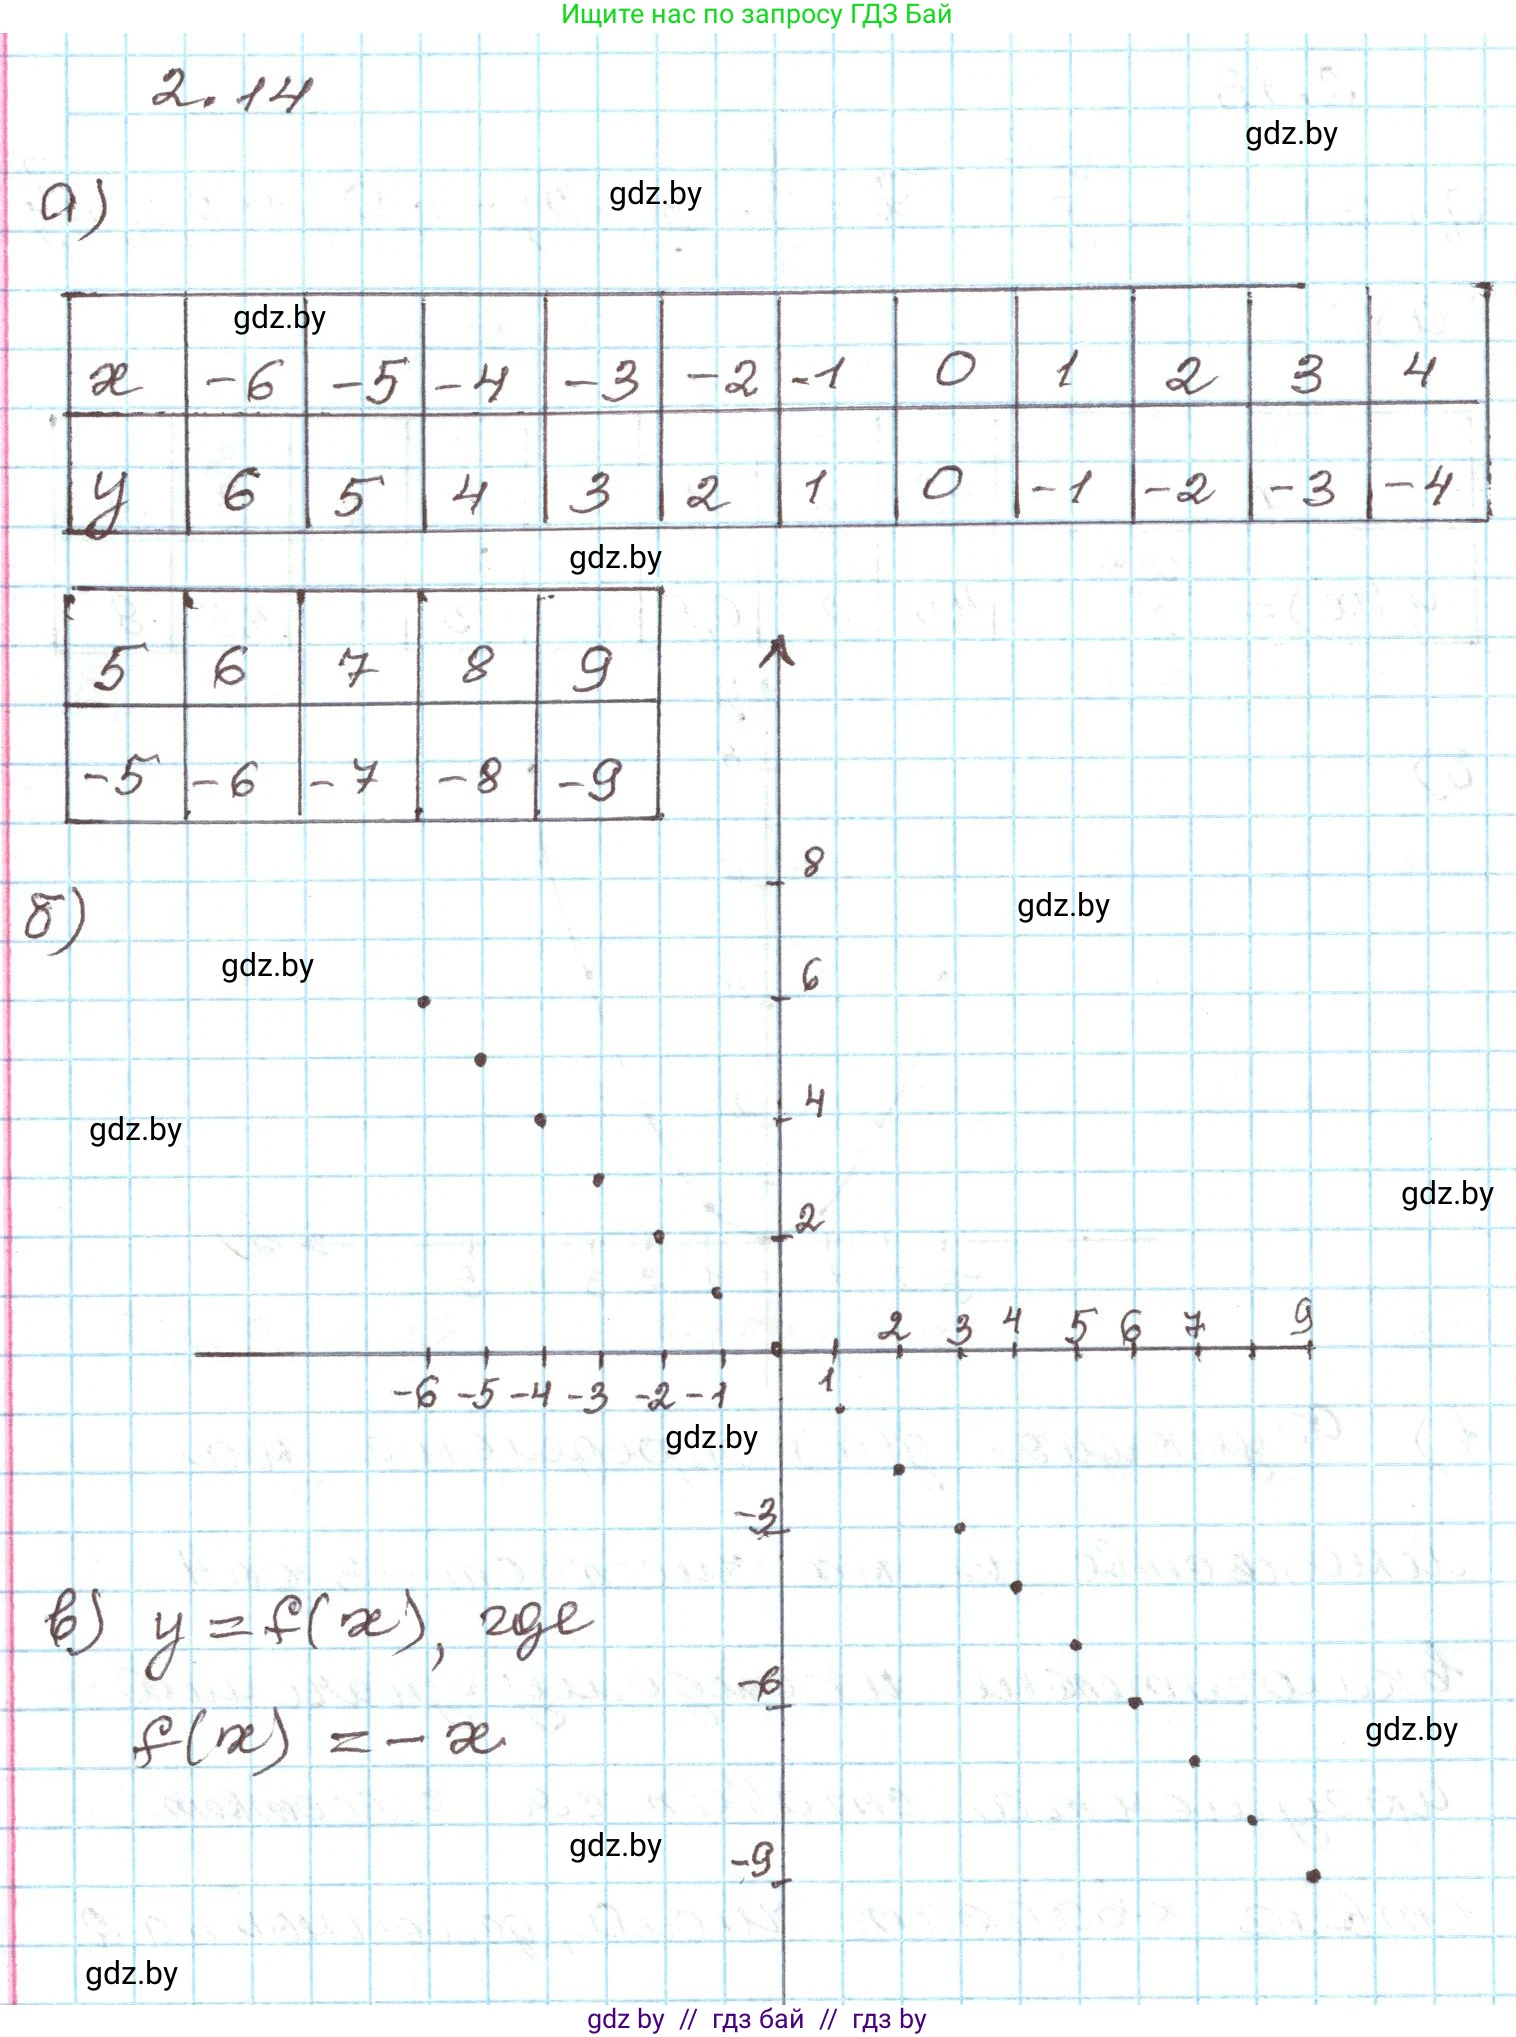 Ищите нас по запросу ГДЗ Бай
2.14
gdz.by
а)
gdz.by
gdz.by
x -6 -5 -4 -3 -2 -1 0 1 2 3 4
y 6 5 4 3 2 1 0 -1 -2 -3 -4
gdz.by
5 6 7 8 9
-5 -6 -7 -8 -9
8
б)
gdz.by
gdz.by
6
4
gdz.by
gdz.by
2
2 3 4 5 6 7 9
-6 -5 -4 -3 -2 -1 1
gdz.by
-3
в) y = f(x), где
-6
f(x) = -x
gdz.by
gdz.by
-9
gdz.by
gdz by // гдз бай // гдз by